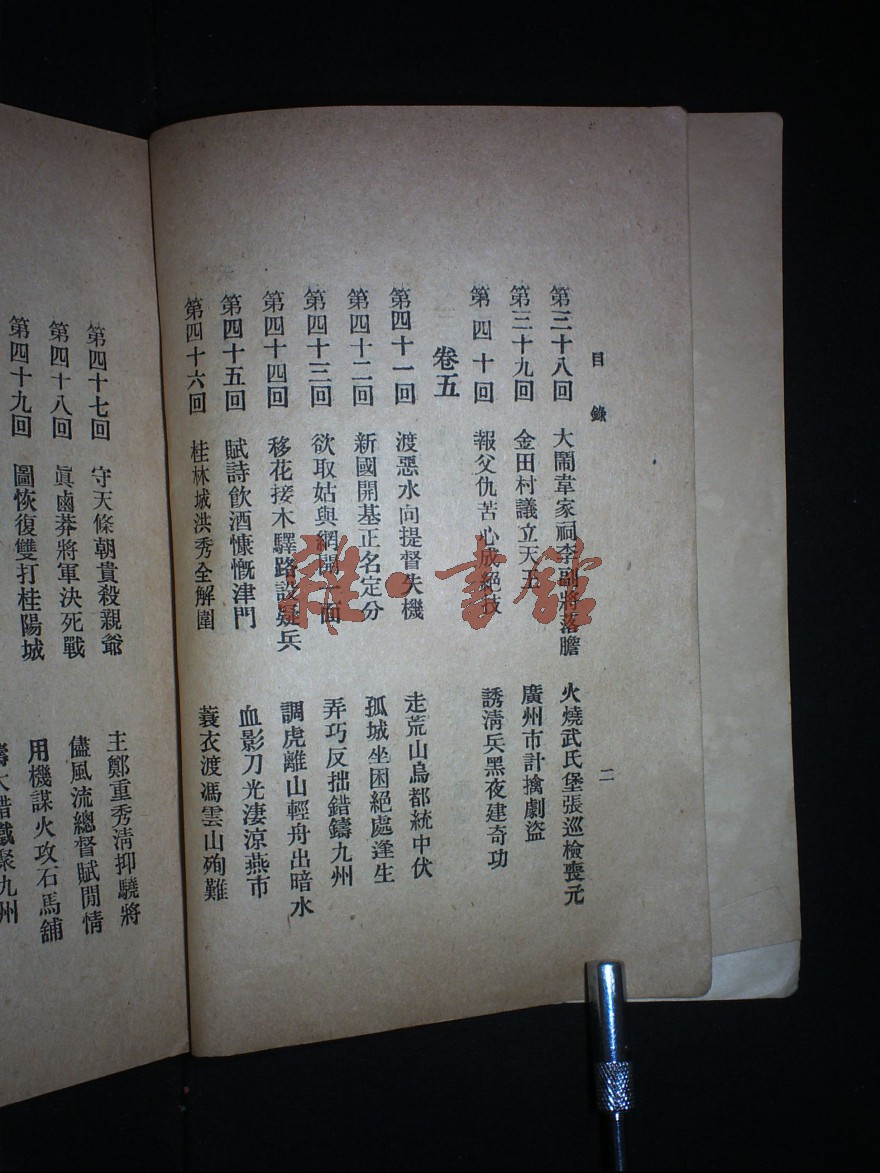 目錄 二
第三十八回 大鬧韋家祠李副將落膽 火燒武氏堡張巡檢喪元
第三十九回 金田村議立天王 廣州市計擒劇盜
第四十回 報父仇苦心成絕技 誘淸兵黑夜建奇功
卷五
第四十一回 渡惡水向提督失機 走荒山烏都統中伏
第四十二回 新國開基正名定分 孤城坐困絕處逢生
第四十三回 欲取姑與網開一面 弄巧反拙錯鑄九州
第四十四回 移花接木驛路設疑兵 調虎離山輕舟出暗水
第四十五回 賦詩飮酒慷慨津門 血影刀光淒涼燕市
第四十六回 桂林城洪秀全解圍 蓑衣渡馮雲山殉難
第四十七回 守天條朝貴殺親爺 主鄭重秀淸抑驍將
第四十八回 眞鹵莽將軍決死戰 儘風流總督賦閒情
第四十九回 圖恢復雙打桂陽城 用機謀火攻石馬舖
大錯鐵聚九州
雜·書館